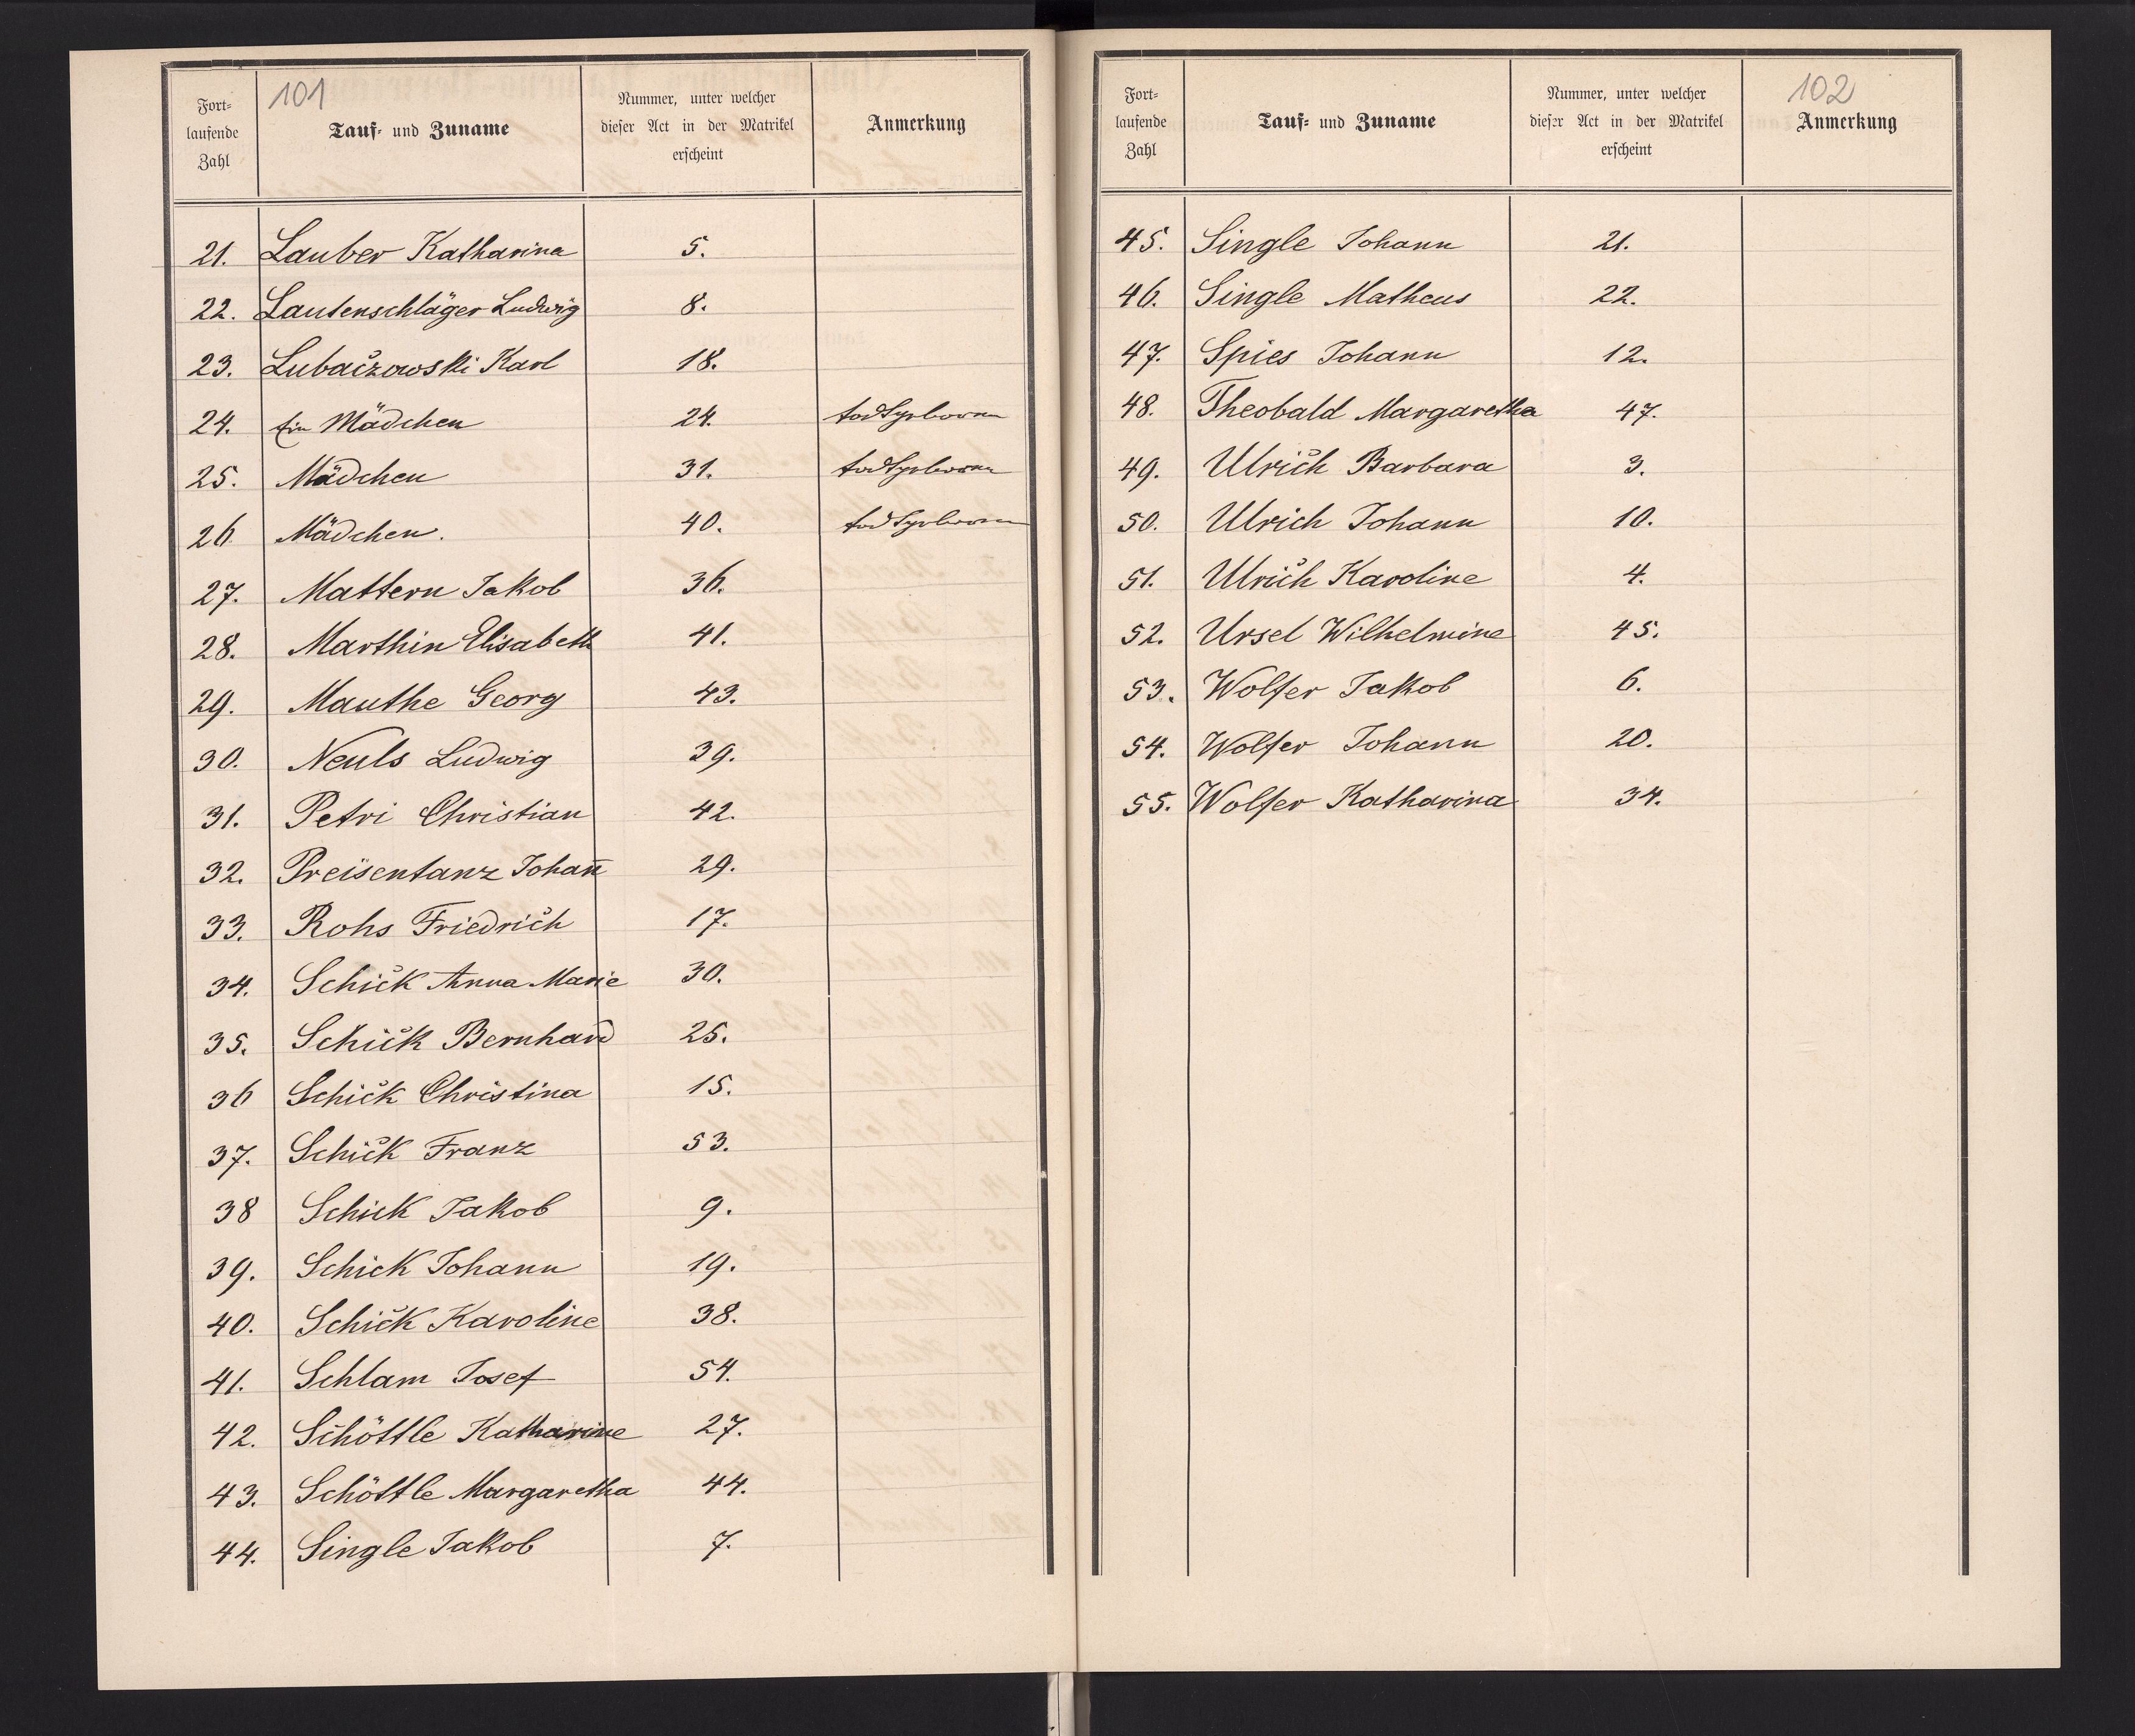 101
Fort-
laufende
Zahl
Tauf- und Zuname
Nummer, unter welcher
dieser Act in der Matrikel
erscheint
Anmerkung
21. Lauber Katharina 5.
22. Lautenschläger Ludwig 8.
23. Lubaczowski Karl 18.
24. Ein Mädchen 24. todtgeboren
25. Mädchen 31. todtgeboren
26 Mädchen. 40. todtgeboren
27. Mattern Jakob 36.
28. Marthin Elisabeth 41.
29. Mauthe Georg 43.
30. Neuls Ludwig 39.
31. Petri Christian 42.
32. Preisentanz Johan̄ 29.
33. Rohs Friedrich 17.
34. Schick Anna Marie 30.
35. Schick Bernhard 25.
36 Schick Christina 15.
37. Schick Franz 53.
38 Schick Jakob 9.
39. Schick Johann 19.
40. Schick Karoline 38.
41. Schlam Josef 54.
42. Schöttle Katharine 27.
43. Schöttle Margaretha 44.
44. Single Jakob 7.
102
Fort-
laufende
Zahl
Tauf- und Zuname
Nummer, unter welcher
dieser Act in der Matrikel
erscheint
Anmerkung
45. Single Johann 21.
46. Single Matheus 22.
47. Spies Johann 12.
48. Theobald Margaretha 47.
49. Ulrich Barbara 3.
50. Ulrich Johann 10.
51. Ulrich Karoline 4.
52. Ursel Wilhelmine 45.
53. Wolfer Jakob 6.
54. Wolfer Johann 20.
55. Wolfer Katharina 34.